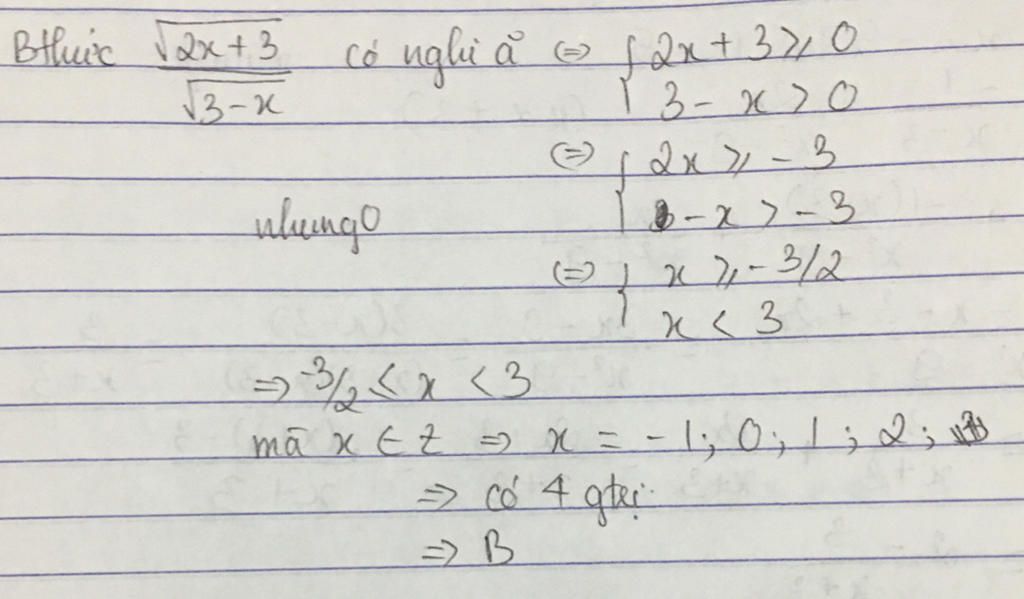 Bthức √(2x+3)/√(3-x) có nghĩa ⇔ { 2x + 3 ⩾ 0
3 - x > 0
⇔ { 2x ⩾ -3
-x > -3
⇔ { x ⩾ -3/2
x < 3
⇒ -3/2 ≤ x < 3
mã x ∈ Z ⇒ x = -1; 0; 1; 2;
⇒ có 4 gtrị
⇒ B